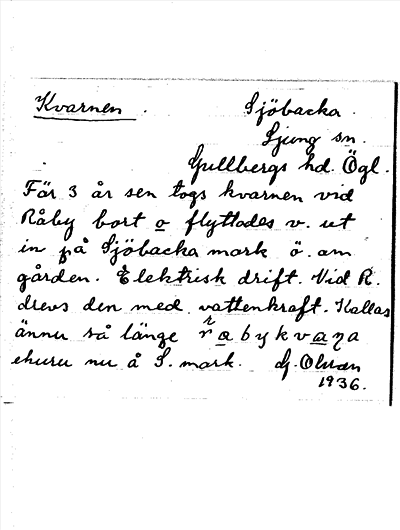 Kvarnen. Sjöbacka.
Ljung sn.
Gullbergs hd. Ögl.
För 3 år sen togs kvarnen vid
Råby bort o flyttades v. ut
in på Sjöbacka mark ö. om
gården. Elektrisk drift. Vid R.
drevs den med vattenkraft. Kallas
ännu så länge
ehuru nu å S. mark. G. Olsson
1936.